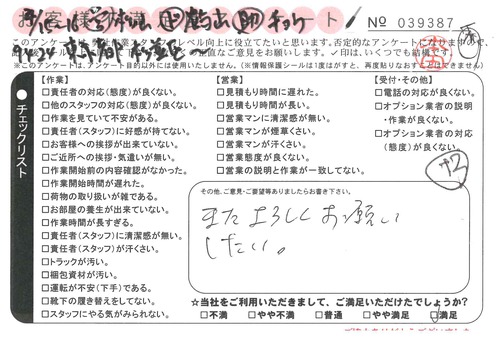 お客様 アンケート
No 039387
このアンケートは
レベル向上に役立てたいと思います。否定的なアンケート
直なご意見をお願いします。✓印は、いくつでも結構です。
※このアンケートは、アンケート目的以外には使用いたしません。(※情報保護シールは1度はがすと、再度貼りなおすことはできません)
チェックリスト
【作業】
□責任者の対応(態度)が良くない。
□他のスタッフの対応(態度)が良くない。
□作業を見ていて不安がある。
□責任者(スタッフ)に好感が持てない。
□お客様への挨拶が出来ていない。
□ご近所への挨拶・気遣いが無い。
□作業開始前の内容確認がなかった。
□作業開始時間が遅れた。
□荷物の取り扱いが雑である。
□お部屋の養生が出来ていない。
□作業時間が長すぎる。
□責任者(スタッフ)に清潔感が無い。
□責任者(スタッフ)が汗くさい。
□トラックが汚い。
□梱包資材が汚い。
□運転が不安(下手)である。
□靴下の履き替えをしてない。
□スタッフにやる気がみられない。
【営業】
□見積もり時間に遅れた。
□見積もり時間が長い。
□営業マンに清潔感が無い。
□営業マンが煙草くさい。
□営業マンが汗くさい。
□営業態度が良くない。
□営業の説明と作業が一致してない。
【受付・その他】
□電話の対応が良くない。
□オプション業者の説明
・作業が良くない。
□オプション業者の対応
(態度)が良くない。
その他、ご意見・ご要望等ありましたらお書き下さい。
またよろしくお願い
したい。
☆当社をご利用いただきまして、ご満足いただけたでしょうか?
□不満 □やや不満 □普通 □やや満足 □満足